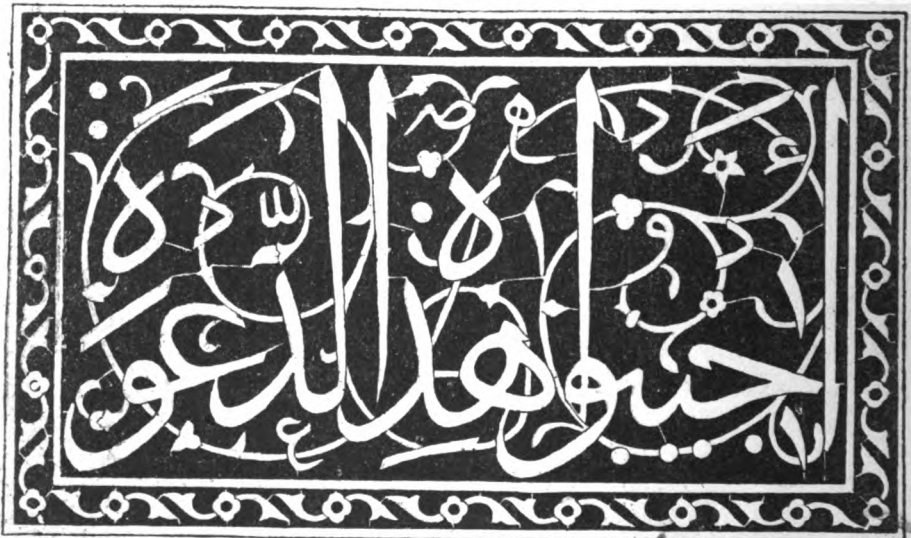 أجيبوا هذه الدعوة